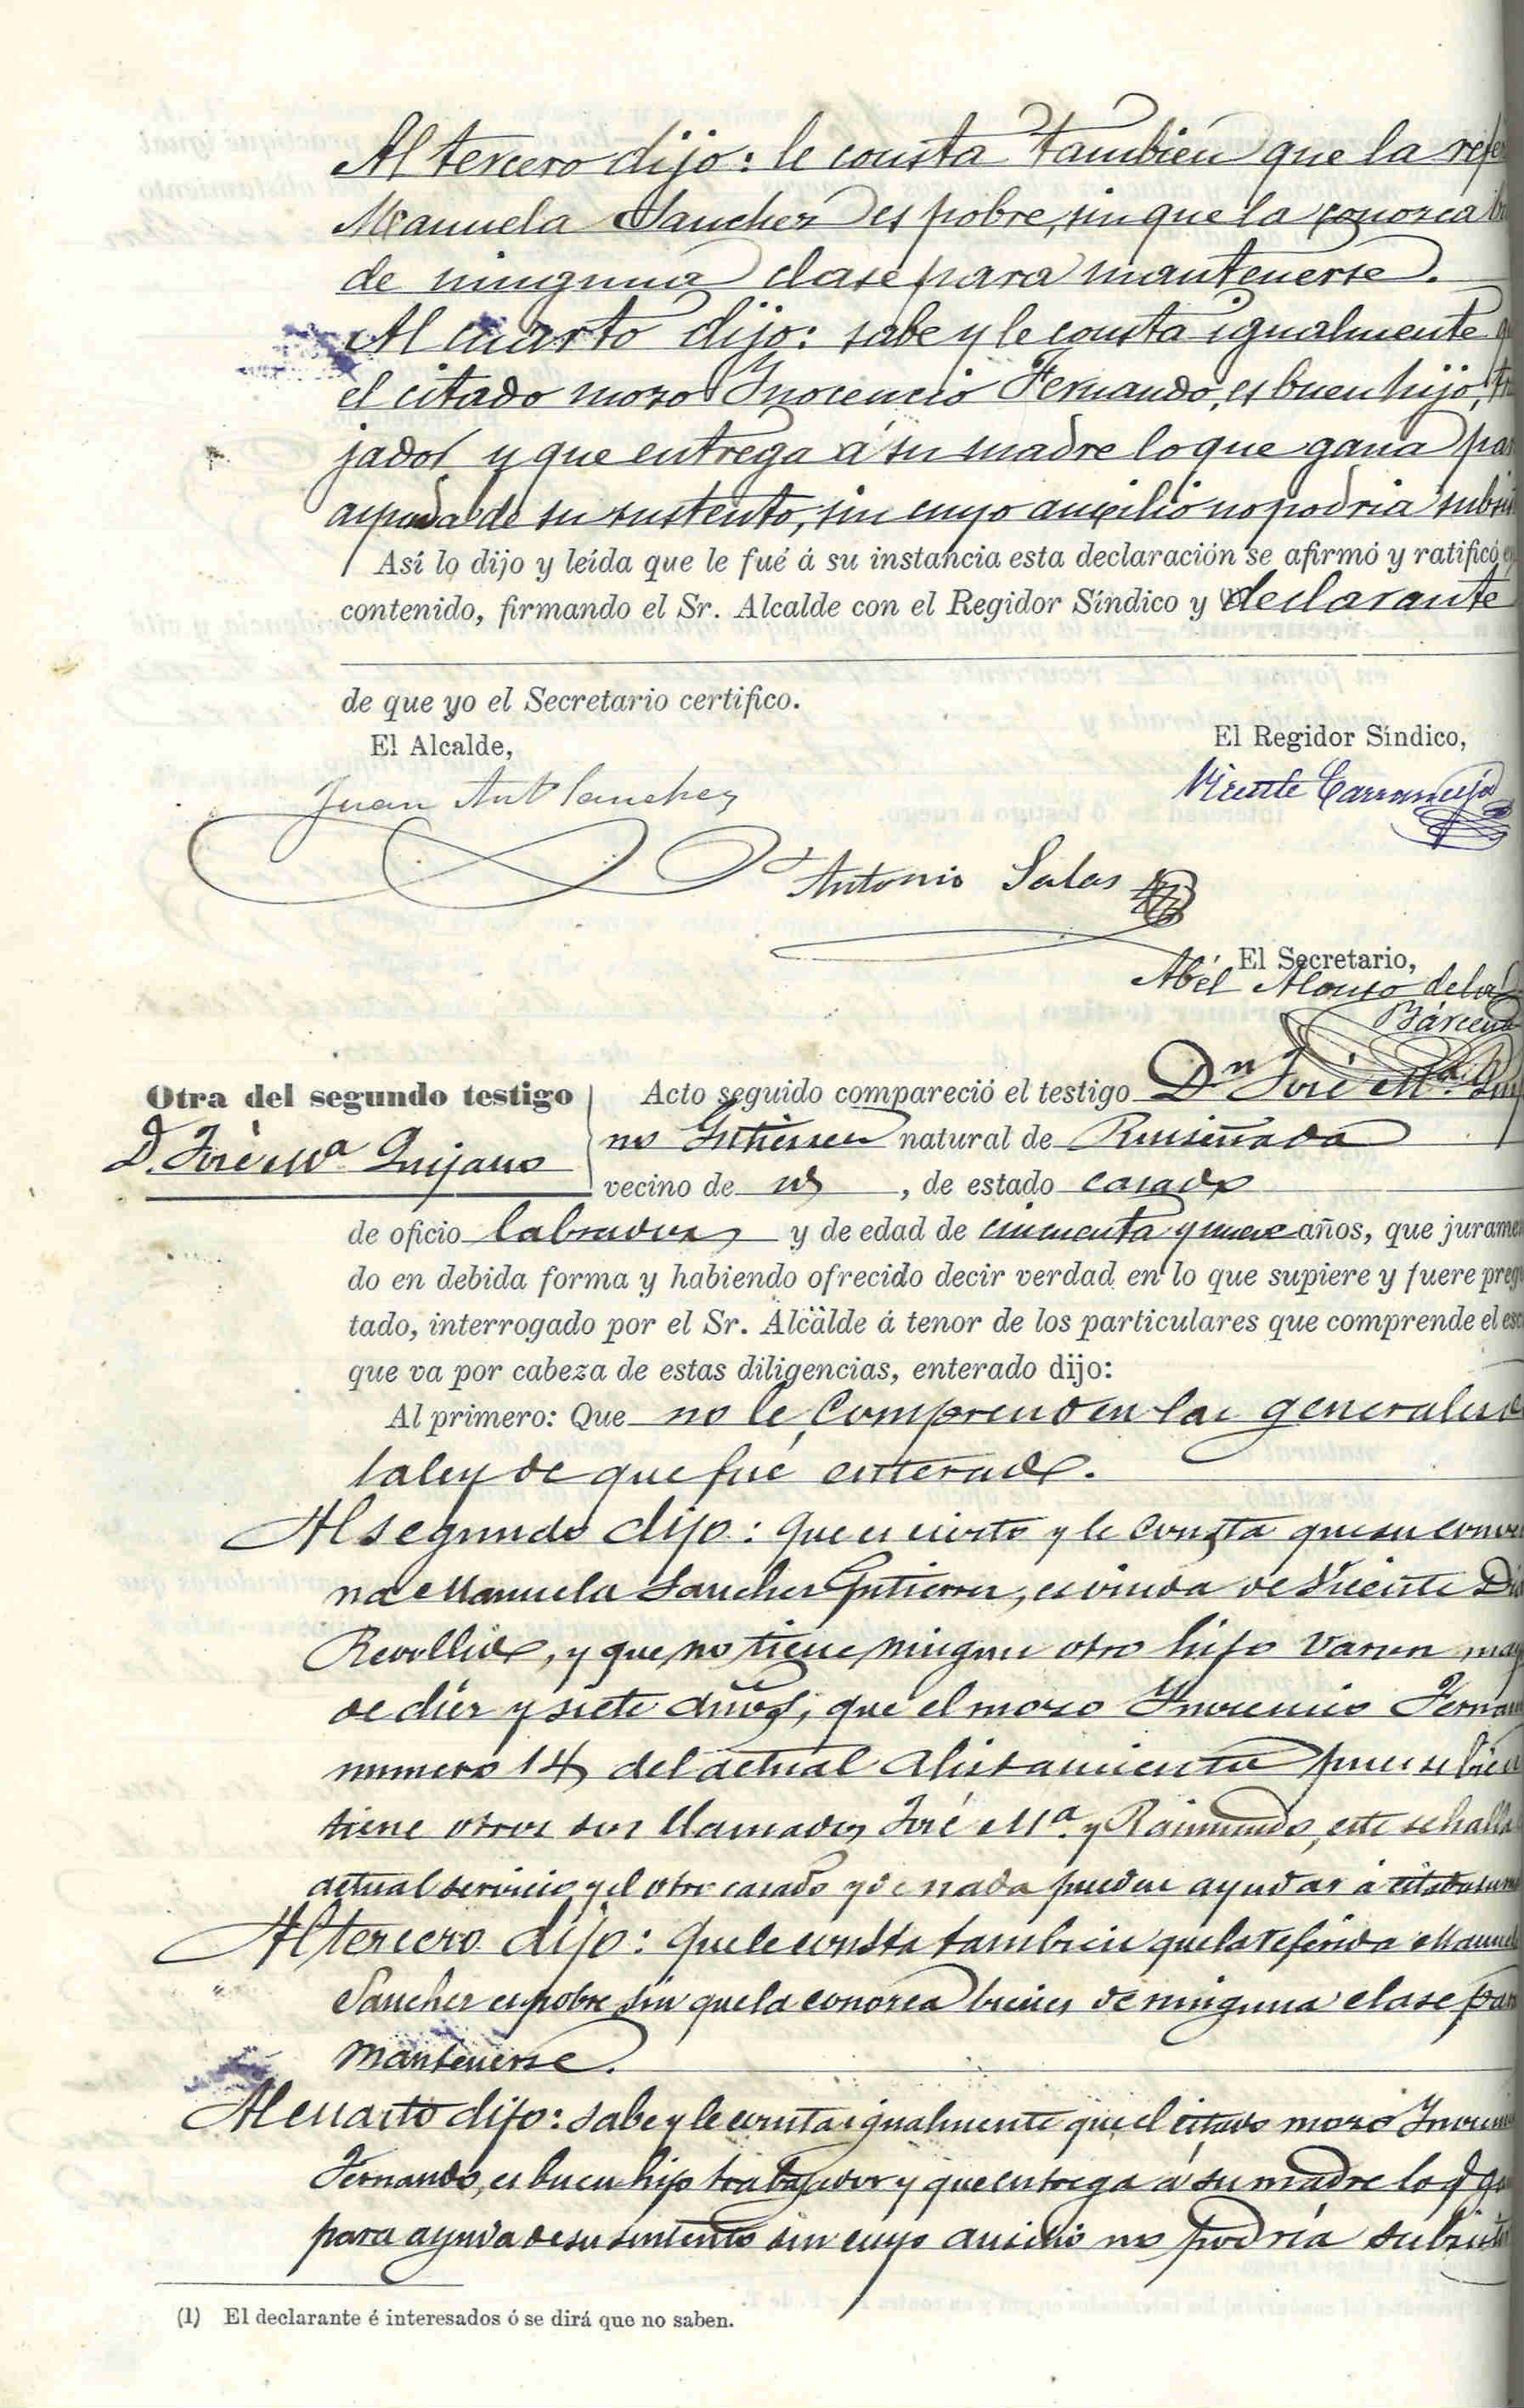 Al tercero dijo: le consta también que la refe
Manuela Sanchez es pobre, sin que la conozca bi
de ninguna clase para mantenerse.
Al cuarto dijo: sabe y le consta igualmente q
el citado mozo Inocencio Fernando, es buen hijo, tr
jador y que entrega á su madre lo que gana par
ayuda de su sustento, sin cuyo auxilio no podria subsis
Así lo dijo y leída que le fué á su instancia esta declaración se afirmó y ratificó en
contenido, firmando el Sr. Alcalde con el Regidor Síndico y (1) declarante
de que yo el Secretario certifico.
El Alcalde,
El Regidor Síndico,
Juan Ant Sanchez
Vicente Carranceja
Antonio Salas
El Secretario,
Abél Alonso de la
Bárcena
Otra del segundo testigo
D. José Mª Quijano
Acto seguido compareció el testigo Dn José Mª. Quij
no Gutierrez natural de Ruiseñada
vecino de id, de estado casado
de oficio labrador y de edad de cincuenta y nueve años, que jurame
do en debida forma y habiendo ofrecido decir verdad en lo que supiere y fuere preg
tado, interrogado por el Sr. Alcalde á tenor de los particulares que comprende el esc
que va por cabeza de estas diligencias, enterado dijo:
Al primero: Que no le comprenden las generales d
la ley de que fué enterado.
Al segundo dijo: Que es cierto y le consta que su conve
na Manuela Sanchez Gutierrez, es viuda de Vicente Di
Revollido, y que no tiene ningun otro hijo varon may
de diez y siete años, que el mozo Inocencio Fernan
numero 14 del actual alistamiento pues si bien
tiene otros dos llamados José Mª. y Raimundo, este se halla
actual servicio y el otro casado y de nada pueden ayudar á citada su m
Al tercero dijo: Que le consta tambien que la referida Manuel
Sanchez es pobre sin que la conozca bienes de ninguna clase par
mantenerse.
Al cuarto dijo: sabe y le consta igualmente que el citado mozo Inocenci
Fernando, es buen hijo trabajador y que entrega á su madre lo q ga
para ayuda de su sustento sin cuyo ausilio no podría subsisti
(1) El declarante é interesados ó se dirá que no saben.